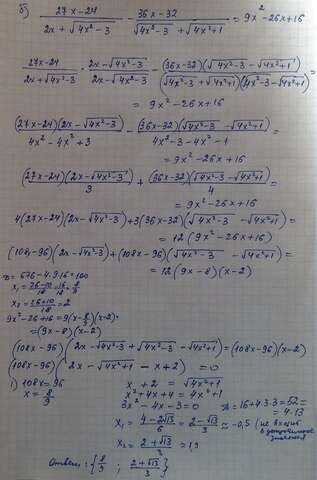 б) (27x-24)/(2x+√(4x²-3)) - (36x-32)/(√(4x²-3)+√(4x²+1)) = 9x²-26x+16
(27x-24)/(2x+√(4x²-3)) · (2x-√(4x²-3))/(2x-√(4x²-3)) - (36x-32)(√(4x²-3)-√(4x²+1))/((√(4x²-3)+√(4x²+1))(√(4x²-3)-√(4x²+1))) =
= 9x²-26x+16
(27x-24)(2x-√(4x²-3))/(4x²-4x²+3) - (36x-32)(√(4x²-3)-√(4x²+1))/(4x²-3-4x²-1) =
= 9x²-26x+16
(27x-24)(2x-√(4x²-3))/3 + (36x-32)(√(4x²-3)-√(4x²+1))/4 =
= 9x²-26x+16
4(27x-24)(2x-√(4x²-3))+3(36x-32)(√(4x²-3)-√(4x²+1)) =
= 12(9x²-26x+16)
(108x-96)(2x-√(4x²-3))+(108x-96)(√(4x²-3)-√(4x²+1)) =
= 12(9x-8)(x-2)
D = 676-4·9·16=100
x₁ = (26-10)/18 = 16/18 = 8/9
x₂ = (26+10)/18 = 2
9x²-26x+16 = 9(x-8/9)(x-2)=
=(9x-8)(x-2)
(108x-96)(2x-√(4x²-3)+√(4x²-3)-√(4x²+1))=(108x-96)(x-2)
(108x-96)(2x-√(4x²+1)-x+2)=0
1) 108x=96
x = 8/9
x+2 = √(4x²+1)
x²+4x+4 = 4x²+1
3x²-4x-3=0
D=16+4·3·3=52=
=4·13
x₁ = (4-2√13)/6 = (2-√13)/3 ≈ -0,5 (не входит
в допустимое
значение)
x₂ = (2+√13)/3 ≈ 1,9
Ответ: {8/9 ; (2+√13)/3}